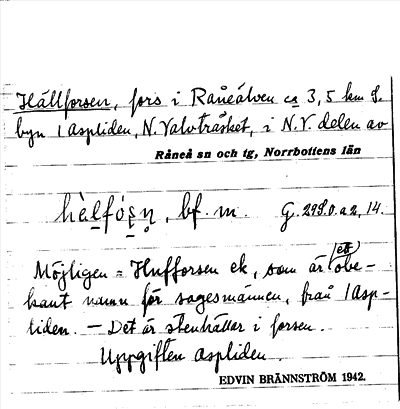 Hällforsen, fors i Råneälven ca 3,5 km S.
byn 1 Aspliden, N. Valvträsket, i N.V. delen av
Råneå sn och tg, Norrbottens län
hȧ̀l̠fós̠n̥, bf. m. G. 299.0.a2, 14.
Möjligen = Hufforsen ek, som är (ett) obe-
kant namn för sagesmännen, från 1 Asp-
liden. — Det är stenhällar i forsen.
Uppgiften Aspliden.
EDVIN BRÄNNSTRÖM 1942.